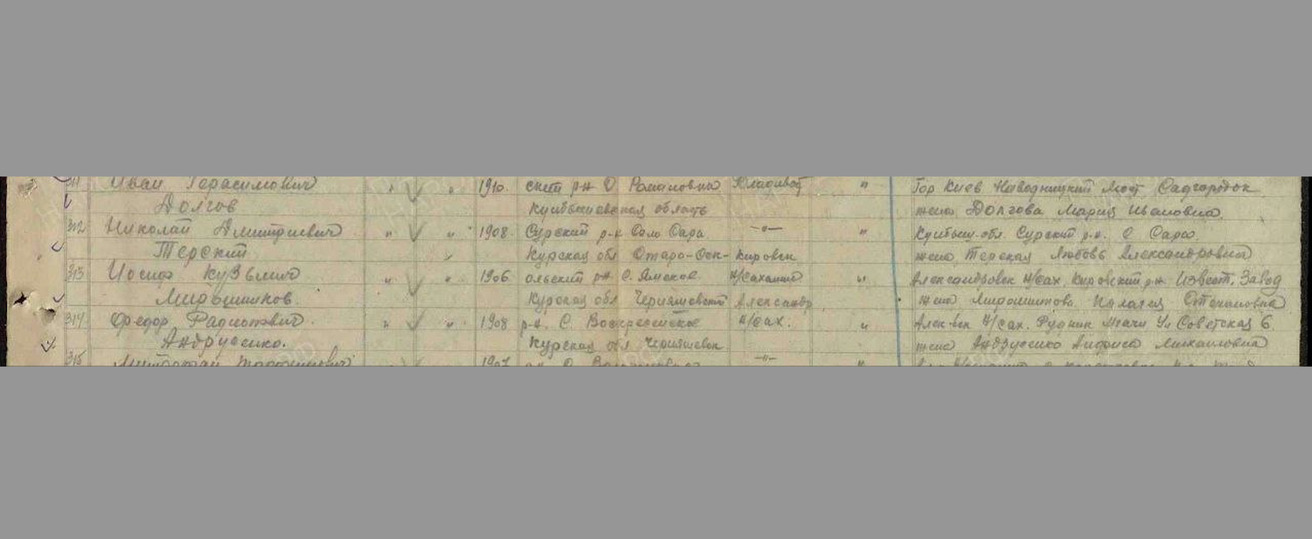 311 Иван Герасимович " " 1910. ский р-н С Романовка Владивост " Гор Киев Наводницкий мост Садгородок
Долгов Куйбышевская область жена Долгова Мария Ивановна
312 Николай Дмитриевич " " 1908 Сурский р-н Село Сара —"— " Куйбыш. обл. Сурский р-н. С Сара
Терский Курская обл Старо-Оск- Кировск жена Терская Любовь Александровна
313 Иосиф Кузьмич " " 1906 ольский рн С. Ямское Н/Сахалине " Александровск Н/Сах. Кировский рн Извест. Завод
Мирошников Курская обл Чернянский Александр жена Мирошникова Пелагея Степановна
314 Федор Радионович " " 1908 р-н. С. Воскресенское Н/Сах. " Алек-вск Н/Сах. Рудник Мгачи Ул Советская 6.
Андрусенко. Курская обл Чернянск жена Андрусенко Анфиса Михайловна
315 1907 —"— "